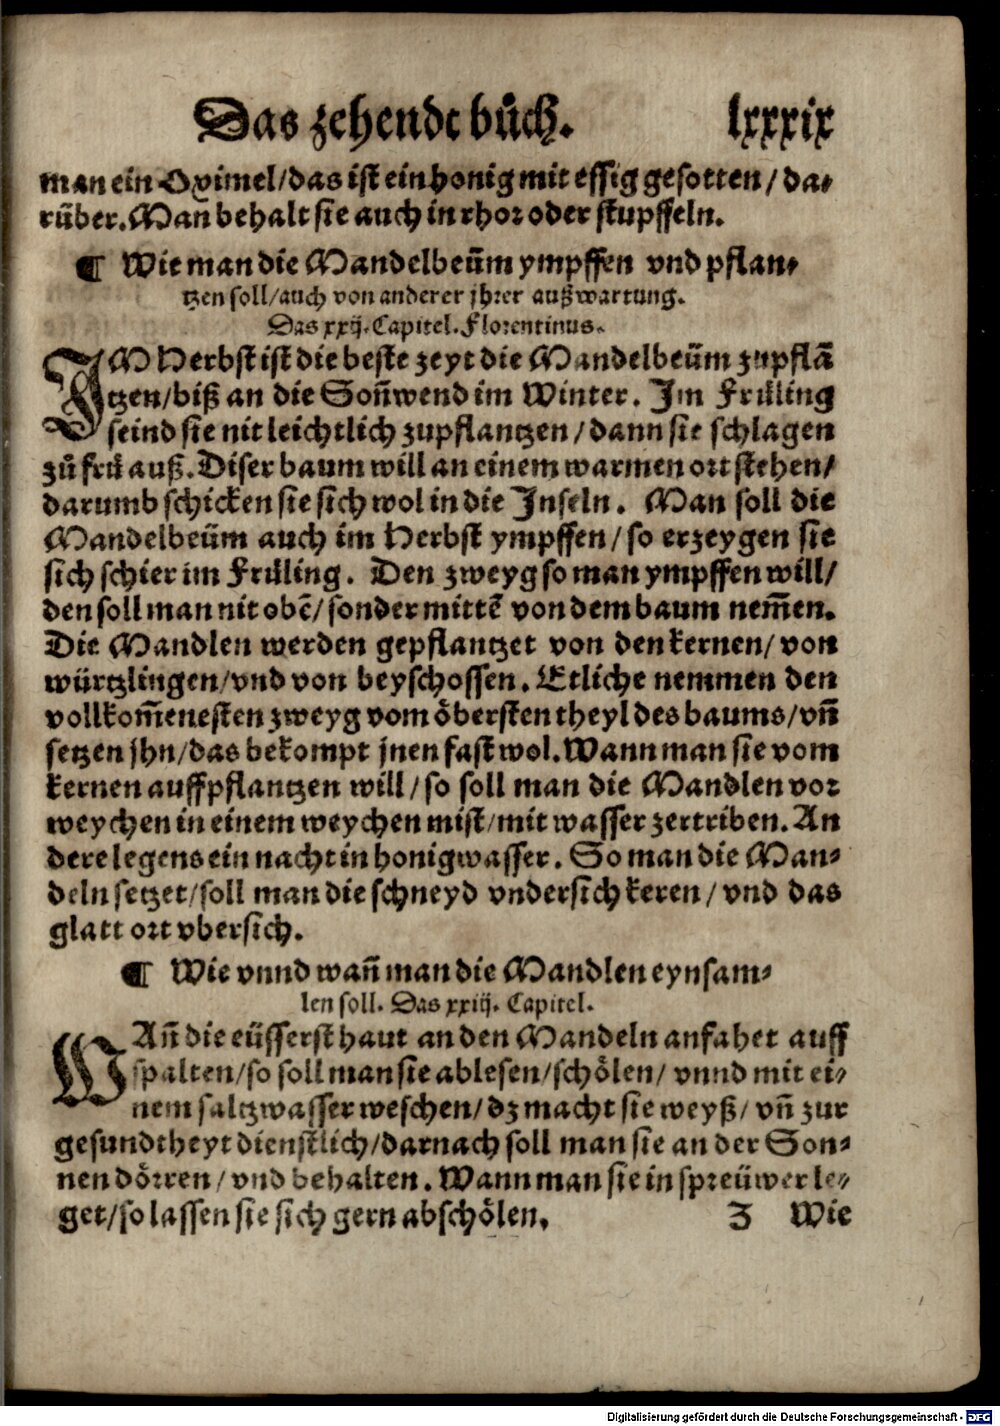 Das zehendt bůch. lxxxix
man ein Oximel/das ist ein honig mit essig gesotten/da-
rüber. Man behalt sie auch in rhor oder stupffeln.
¶ Wie man die Mandelbeüm ympffen vnd pflan-
tzen soll/auch von anderer jhrer außwartung.
Das xxij. Capitel. Florentinus.
IM Herbst ist die beste zeyt die Mandelbeüm zupflā
tzen/biß an die Soñwend im Winter. Im Früling
seind sie nit leichtlich zupflantzen/dann sie schlagen
zů frü auß. Diser baum will an einem warmen ort stehen/
darumb schicken sie sich wol in die Inseln. Man soll die
Mandelbeüm auch im Herbst ympffen/so erzeygen sie
sich schier im Früling. Den zweyg so man ympffen will/
den soll man nit obē/sonder mittē von dem baum nem̄en.
Die Mandlen werden gepflantzet von den kernen/von
würtzlingen/vnd von beyschossen. Etliche nemmen den
vollkom̄enesten zweyg vom öbersten theyl des baums/vñ
setzen jhn/das bekompt jnen fast wol. Wann man sie vom
kernen auffpflantzen will/so soll man die Mandlen vor
weychen in einem weychen mist/mit wasser zertriben. An
dere legens ein nacht in honigwasser. So man die Man-
deln setzet/soll man die schneyd vndersich keren/vnd das
glatt ort vbersich.
¶ Wie vnnd wañ man die Mandlen eynsam-
len soll. Das xxiij. Capitel.
WAñ die eüsserst haut an den Mandeln anfahet auff
spalten/so soll man sie ablesen/schölen/vnnd mit ei-
nem saltzwasser weschen/dz macht sie weyß/vñ zur
gesundtheyt dienstlich/darnach soll man sie an der Son-
nen dörren/vnd behalten. Wann man sie in spreüwer le-
get/so lassen sie sich gern abschölen.
Z Wie
Digitalisierung gefördert durch die Deutsche Forschungsgemeinschaft - DFG